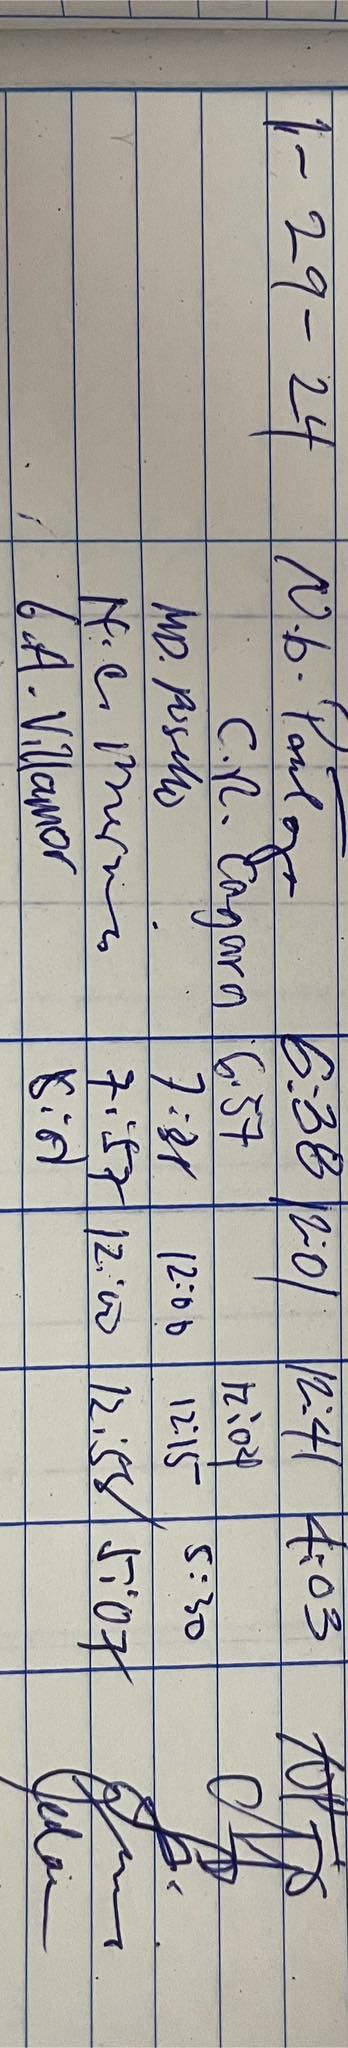 1-29-24 N.b. 6:38 12:01 12:41 4:03
C.R. Cagara 6:57 12:04
MD. 7:21 12:00 12:15 5:30
N.C. 7:57 12:00 12:58 5:07
G.A. Villamor 8:01